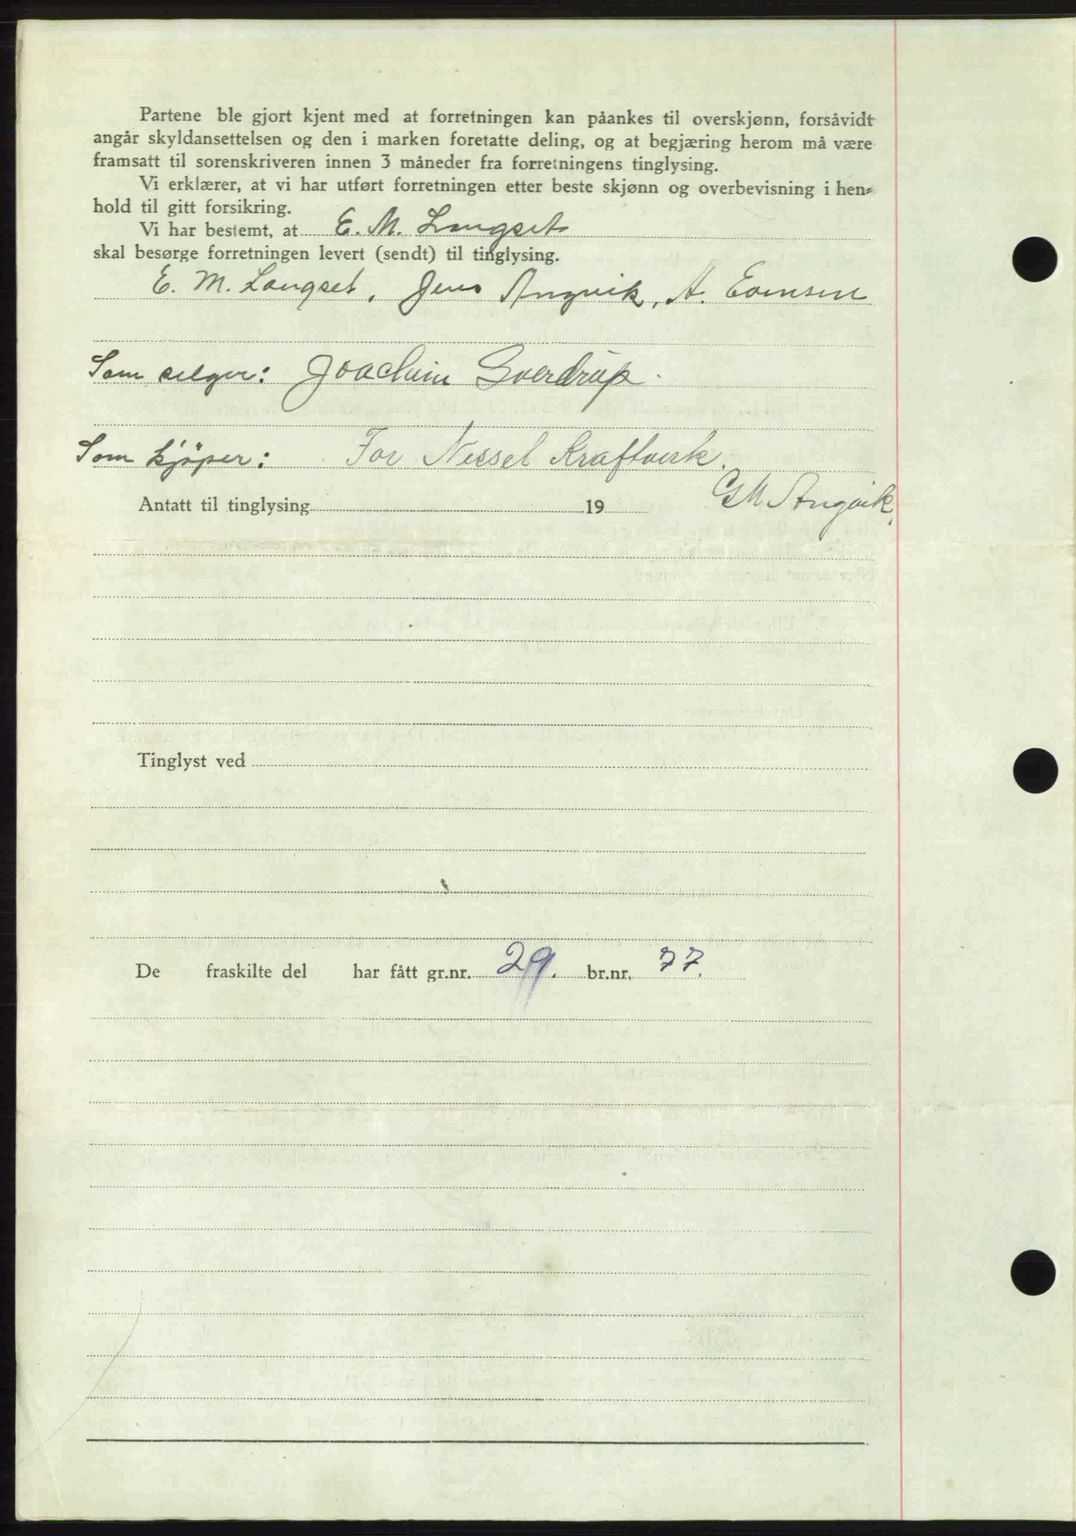 Partene ble gjort kjent med at forretningen kan påankes til overskjønn, forsåvidt
angår skyldansettelsen og den i marken foretatte deling, og at begjæring herom må være
framsatt til sorenskriveren innen 3 måneder fra forretningens tinglysing.
Vi erklærer, at vi har utført forretningen etter beste skjønn og overbevisning i hen-
hold til gitt forsikring.
Vi har bestemt, at E. M. Langset
skal besørge forretningen levert (sendt) til tinglysing.
E. M. Langset, Jens Angvik, A.
Som selger: Joachim Sverdrup.
Som kjøper: For Nesset Kraftverk.
GM Angvik.
Antatt til tinglysing 19
Tinglyst ved
De fraskilte del har fått gr.nr. 29. br.nr. 77.